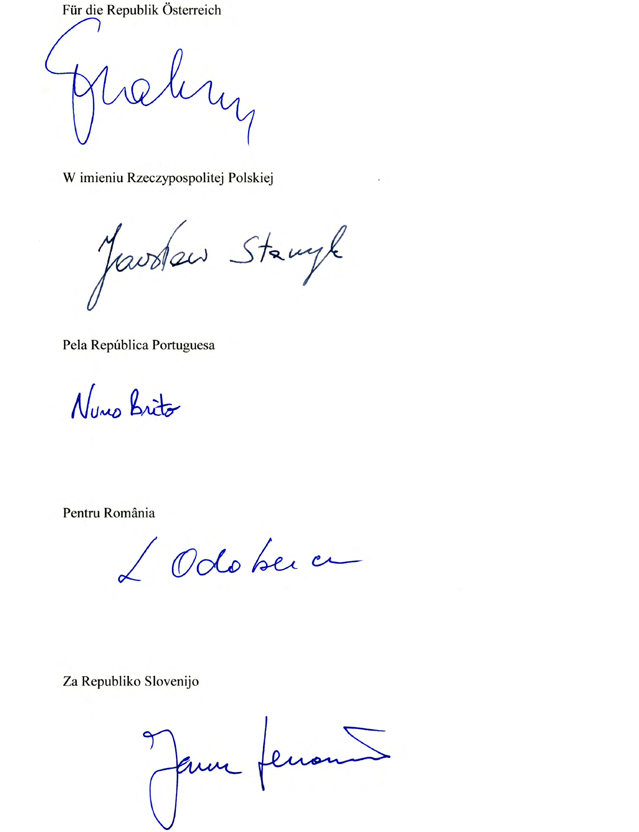 Für die Republik Österreich
W imieniu Rzeczypospolitej Polskiej
Jarosław Starzyk
Pela República Portuguesa
Nuno Brito
Pentru România
L Odobescu
Za Republiko Slovenijo